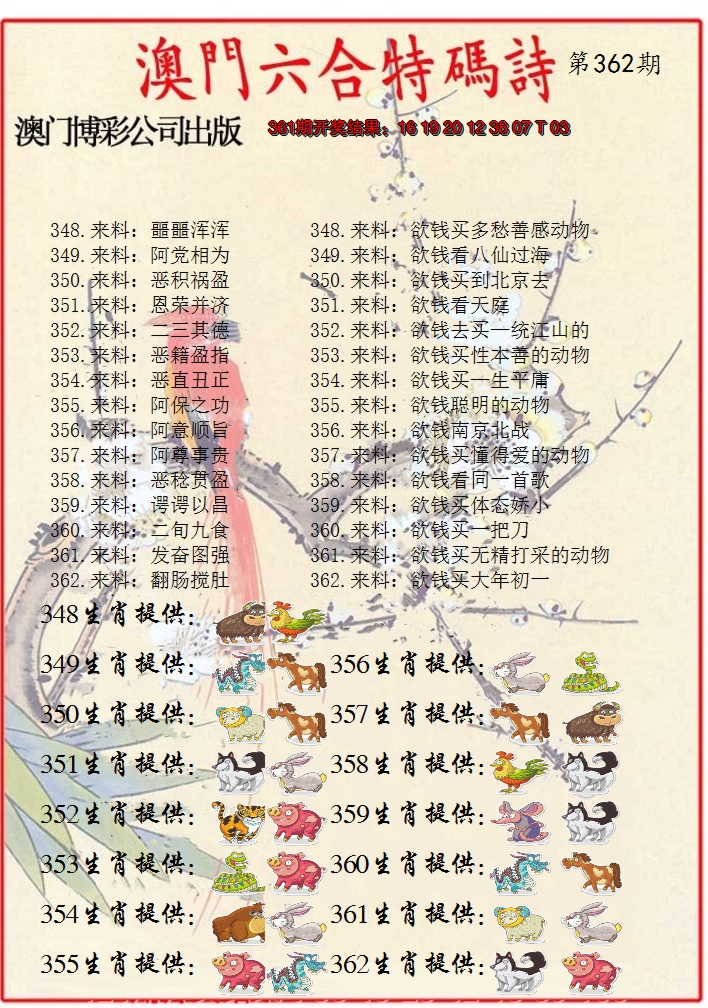 澳門六合特碼詩 第362期
澳门博彩公司出版 361期开奖结果：16 19 20 12 38 07 T 03
348.来料：噩噩浑浑 348.来料：欲钱买多愁善感动物
349.来料：阿党相为 349.来料：欲钱看八仙过海
350.来料：恶积祸盈 350.来料：欲钱买到北京去
351.来料：恩荣并济 351.来料：欲钱看天庭
352.来料：二三其德 352.来料：欲钱去买一统江山的
353.来料：恶籍盈指 353.来料：欲钱买性本善的动物
354.来料：恶直丑正 354.来料：欲钱买一生平庸
355.来料：阿保之功 355.来料：欲钱聪明的动物
356.来料：阿意顺旨 356.来料：欲钱南京北战
357.来料：阿尊事贵 357.来料：欲钱买懂得爱的动物
358.来料：恶稔贯盈 358.来料：欲钱看同一首歌
359.来料：谔谔以昌 359.来料：欲钱买体态娇小
360.来料：二旬九食 360.来料：欲钱买一把刀
361.来料：发奋图强 361.来料：欲钱买无精打采的动物
362.来料：翻肠搅肚 362.来料：欲钱买大年初一
348生肖提供：
349生肖提供： 356生肖提供：
350生肖提供： 357生肖提供：
351生肖提供： 358生肖提供：
352生肖提供： 359生肖提供：
353生肖提供： 360生肖提供：
354生肖提供： 361生肖提供：
355生肖提供： 362生肖提供：